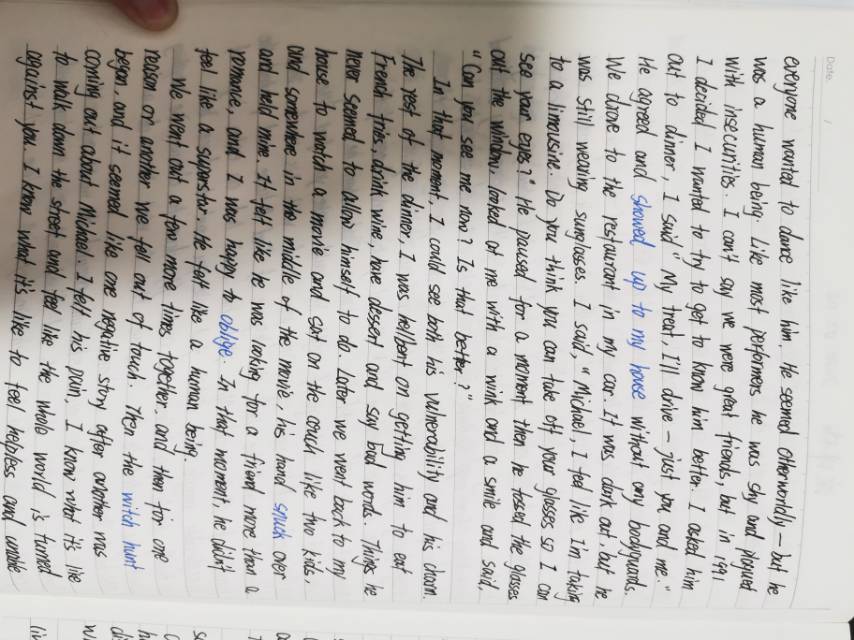 Date. /
everyone wanted to dance like him, he seemed otherworldly - but he
was a human being. Like most performers he was shy and plagued
with insecurities. I can't say we were great friends, but in 1991
I decided I wanted to try to get to know him better. I asked him
out to dinner, I said "My treat, I'll drive - just you and me."
He agreed and showed up to my house without any bodyguards.
We drove to the restaurant in my car. It was dark out but he
was still wearing sunglasses. I said, "Michael, I feel like I'm taking
to a limousine. Do you think you can take off your glasses so I can
see your eyes?" He paused for a moment then he tossed the glasses
out the window, looked at me with a wink and a smile and said,
"Can you see me now? Is that better?"
In that moment, I could see both his vulnerability and his charm.
The rest of the dinner, I was hellbent on getting him to eat
French fries, drink wine, have dessert and say bad words. Things he
never seemed to allow himself to do. Later we went back to my
house to watch a movie and sat on the couch like two kids,
and somewhere in the middle of the movie, his hand snuck over
and held mine. It felt like he was looking for a friend more than a
romance, and I was happy to oblige. In that moment, he didn't
feel like a superstar. He felt like a human being.
We went out a few more times together, and then for one
reason or another we fell out of touch. Then the witch hunt
began, and it seemed like one negative story after another was
coming out about Michael. I felt his pain, I know what it's like
to walk down the street and feel like the whole world is turned
against you. I know what it's like to feel helpless and unable